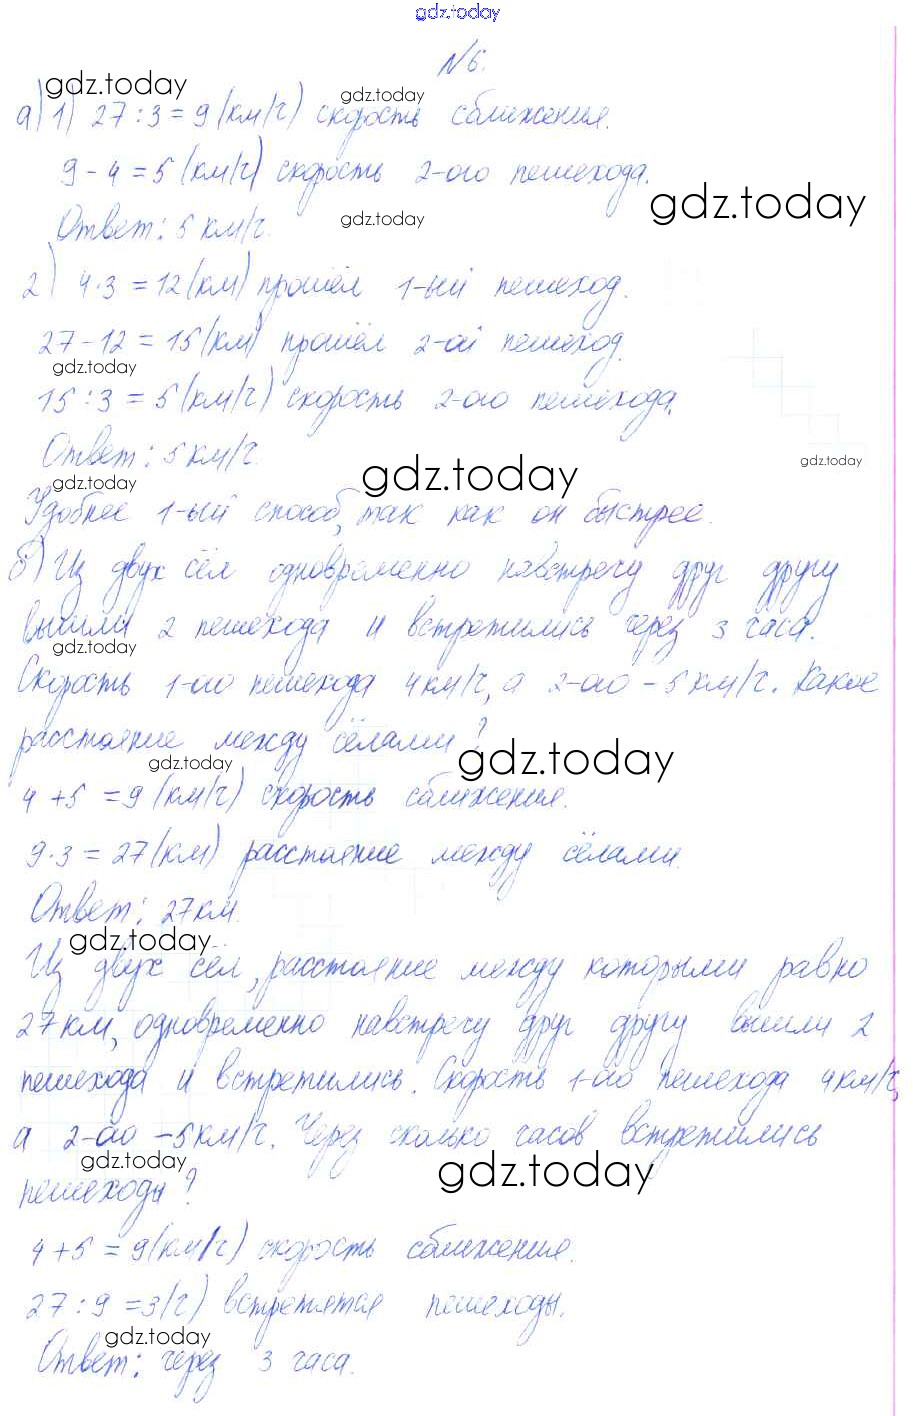 gdz.today
№6.
gdz.today
gdz.today
а) 1) 27 : 3 = 9 (км/ч) скорость сближения.
9 - 4 = 5 (км/ч) скорость 2-ого пешехода.
gdz.today
Ответ: 5 км/ч.
gdz.today
2) 4·3 = 12 (км) прошёл 1-ый пешеход.
27 - 12 = 15 (км) прошёл 2-ой пешеход.
gdz.today
15 : 3 = 5 (км/ч) скорость 2-ого пешехода.
Ответ: 5 км/ч.
gdz.today
gdz.today
gdz.today
Удобнее 1-ый способ, так как он быстрее.
б) Из двух сёл одновременно навстречу друг другу
вышли 2 пешехода и встретились через 3 часа.
gdz.today
Скорость 1-ого пешехода 4 км/ч, а 2-ого - 5 км/ч. Какое
расстояние между сёлами?
gdz.today
gdz.today
4 + 5 = 9 (км/ч) скорость сближения.
9·3 = 27 (км) расстояние между сёлами.
Ответ: 27 км.
gdz.today
Из двух сёл, расстояние между которыми равно
27 км, одновременно навстречу друг другу вышли 2
пешехода и встретились. Скорость 1-ого пешехода 4 км/ч,
а 2-ого - 5 км/ч. Через сколько часов встретились
gdz.today
gdz.today
пешеходы?
4 + 5 = 9 (км/ч) скорость сближения.
27 : 9 = 3 (ч) встретятся пешеходы.
gdz.today
Ответ: через 3 часа.